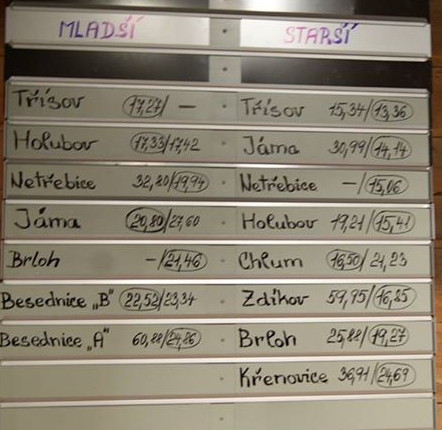 MLADŠÍ STARŠÍ
Třísov 17,27/— Třísov 15,34/13,36
Holubov 17,33/17,42 Jáma 30,99/14,14
Netřebice 32,80/19,94 Netřebice —/15,06
Jáma 20,80/27,60 Holubov 19,21/15,41
Brloh -/21,46 Chlum 16,50/21,23
Besednice „B" 22,52/23,34 Zdíkov 59,95/16,85
Besednice „A" 60,88/24,86 Brloh 25,88/19,27
Křenovice 36,91/24,69